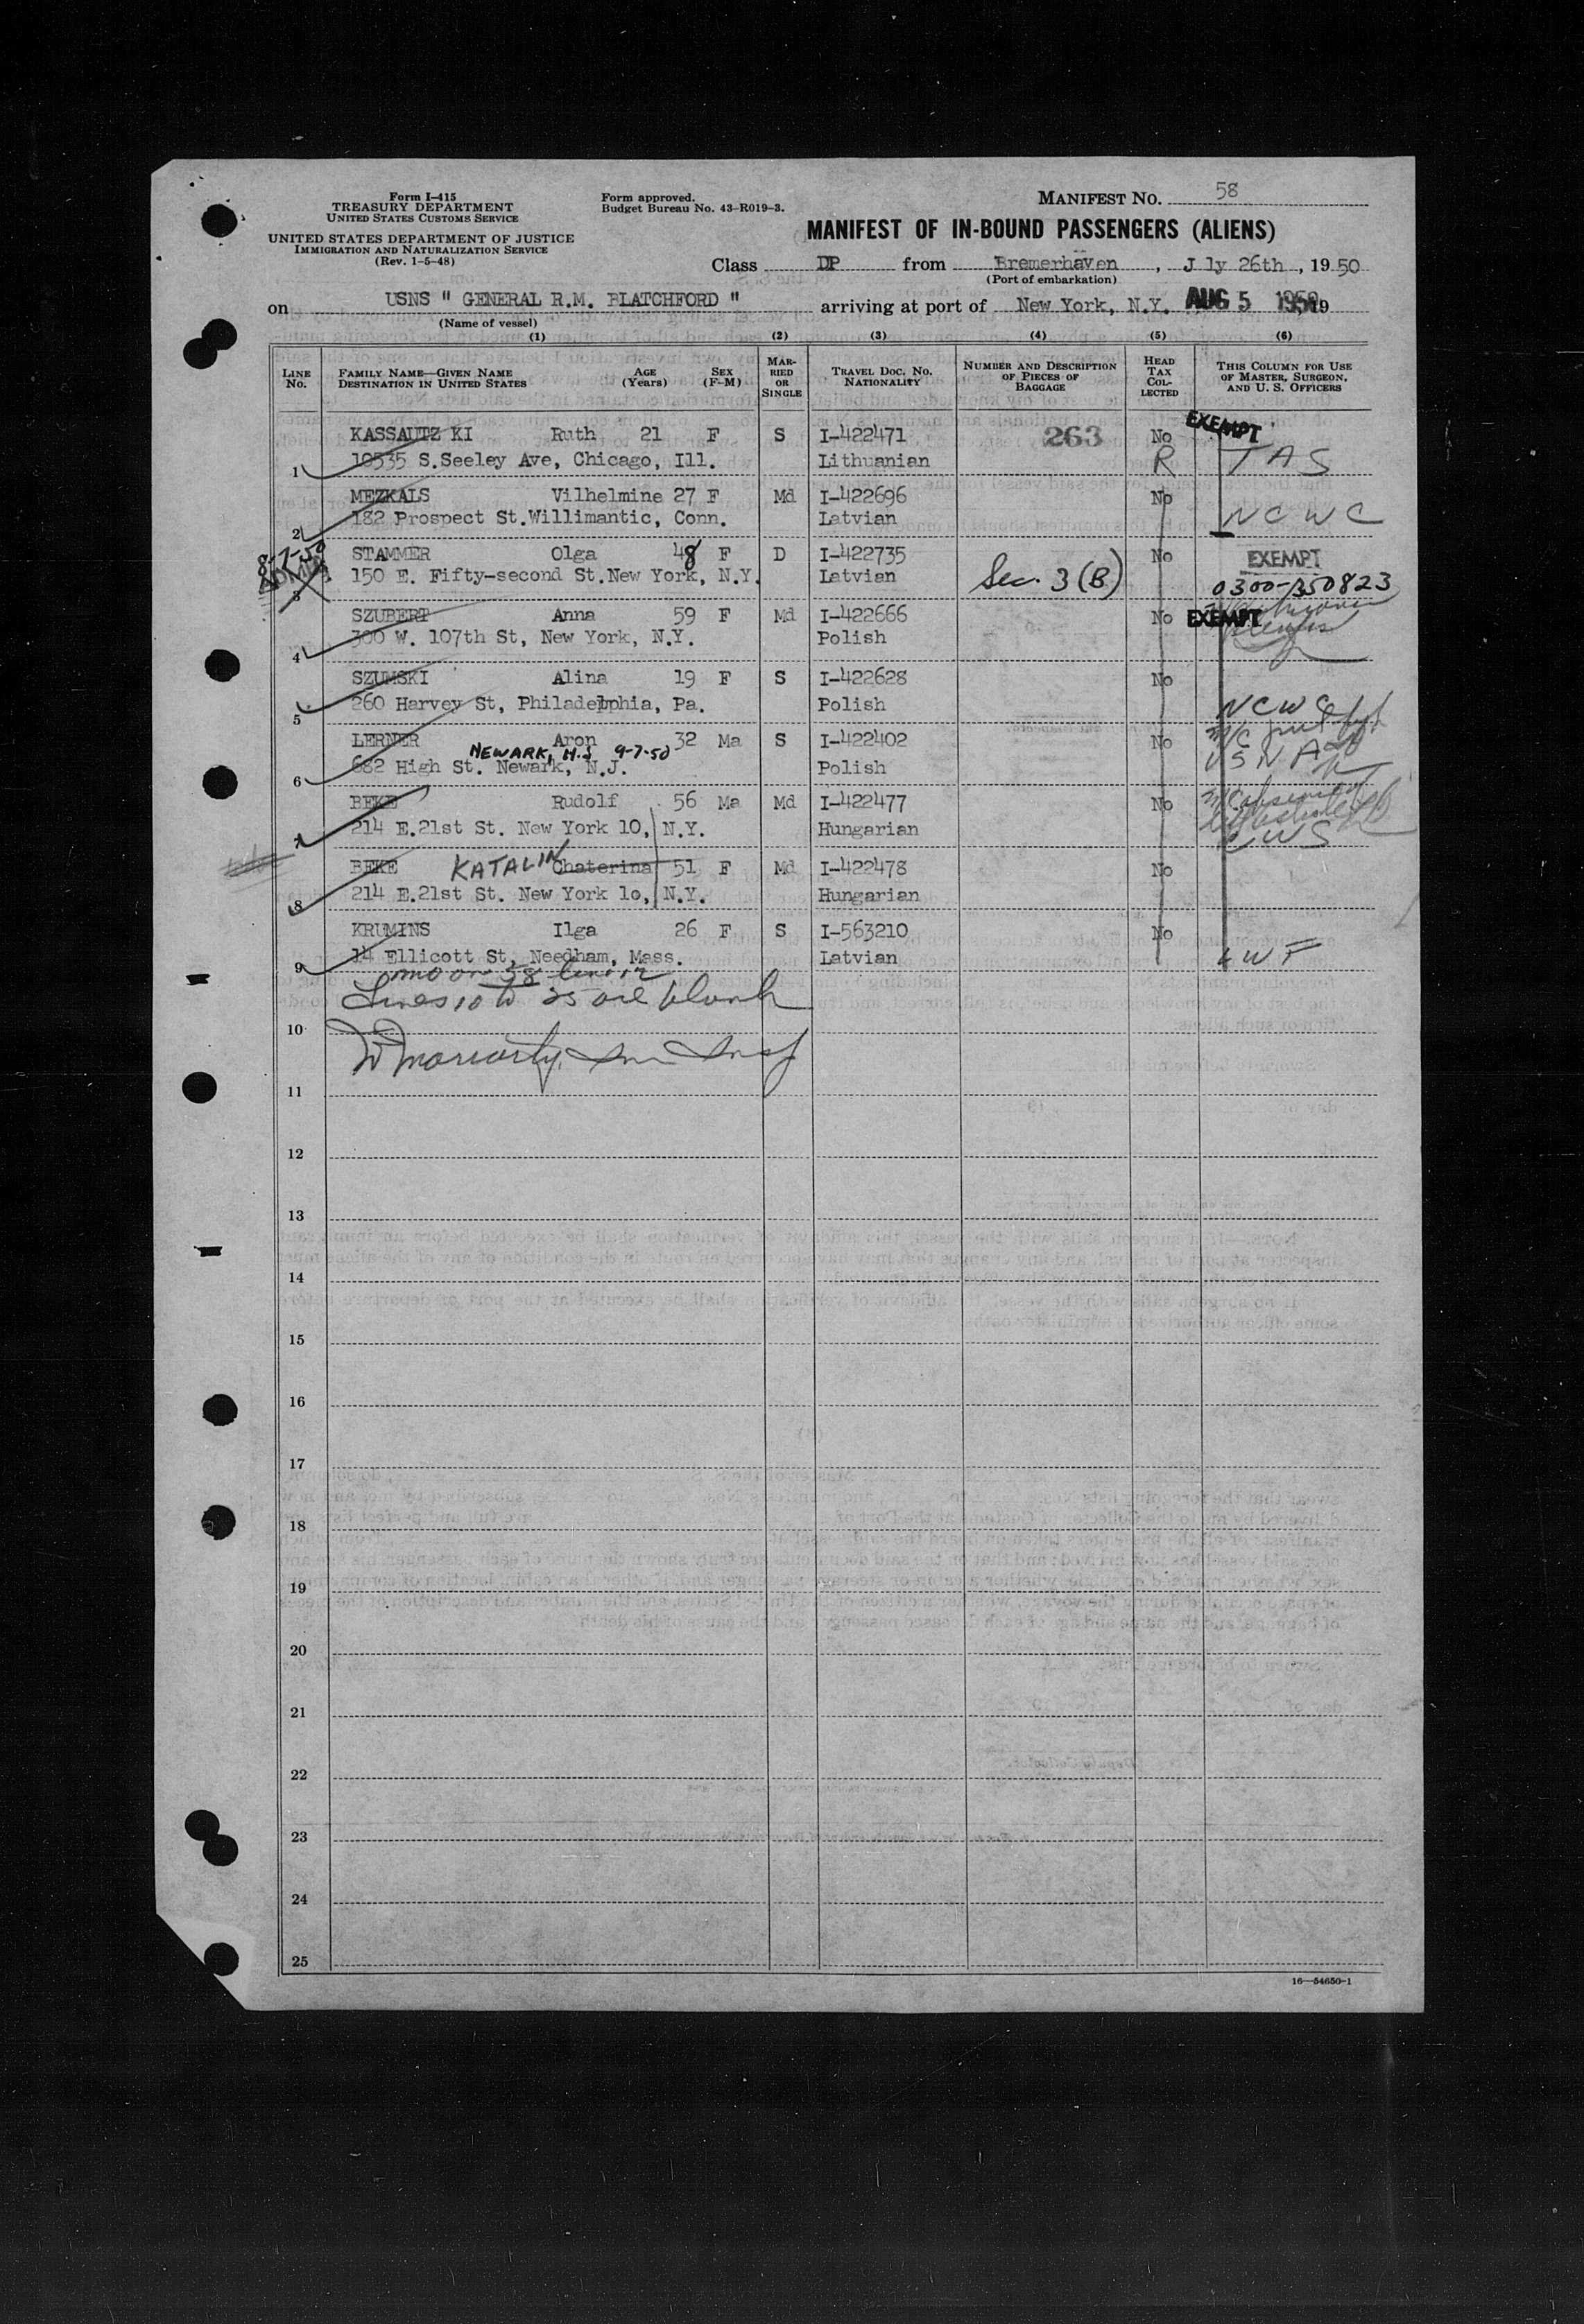 Form I-415
TREASURY DEPARTMENT
UNITED STATES CUSTOMS SERVICE
UNITED STATES DEPARTMENT OF JUSTICE
IMMIGRATION AND NATURALIZATION SERVICE
(Rev. 1-5-48)
Form approved.
Budget Bureau No. 43-R019-3.
MANIFEST NO. 58
MANIFEST OF IN-BOUND PASSENGERS (ALIENS)
Class DP from Bremerhaven, J ly 26th, 1950
(Port of embarkation)
on USNS " GENERAL R.M. BLATCHFORD " arriving at port of New York, N.Y. AUG 5 1950 19
(Name of vessel)
(1) (2) (3) (4) (5) (6)
LINE No.
FAMILY NAME—GIVEN NAME DESTINATION IN UNITED STATES
AGE (Years)
SEX (F-M)
MARRIED OR SINGLE
TRAVEL DOC. NO. NATIONALITY
NUMBER AND DESCRIPTION OF PIECES OF BAGGAGE
HEAD TAX COLLECTED
THIS COLUMN FOR USE OF MASTER, SURGEON, AND U. S. OFFICERS
KASSAUTZ KI Ruth 21 F S I-422471 263 No EXEMPT
1 10535 S.Seeley Ave, Chicago, Ill. Lithuanian R TAS
MEZKALS Vilhelmine 27 F Md I-422696 No
2 182 Prospect St.Willimantic, Conn. Latvian NCWC
8-7-50
STAMMER Olga 48 F D I-422735 No EXEMPT
3 150 E. Fifty-second St.New York, N.Y. Latvian Sec. 3(B) 0300-350823
SZUBERT Anna 59 F Md I-422666 No EXEMPT
4 300 W. 107th St, New York, N.Y. Polish
SZUMSKI Alina 19 F S I-422628 No
5 260 Harvey St, Philadelphia, Pa. Polish NCWC
LERNER Aron 32 Ma S I-422402 No
NEWARK, N.J. 9-7-50
6 682 High St. Newark, N.J. Polish USNA
BEKE Rudolf 56 Ma Md I-422477 No
7 214 E.21st St. New York 10, N.Y. Hungarian CWS
BEKE KATALIN Chaterina 51 F Md I-422478 No
8 214 E.21st St. New York 1o, N.Y. Hungarian
KRUMINS Ilga 26 F S I-563210 No
9 14 Ellicott St, Needham, Mass. Latvian LWF
Lines 10 to 25 are blank
10
W Moriarty, Im Insp
11
12
13
14
15
16
17
18
19
20
21
22
23
24
25
16—54650-1